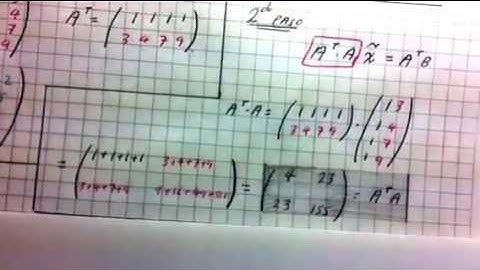 4
7
9
Aᵀ = ( 1 1 1 1
3 4 7 9 )
2
2º PASO
Aᵀ·A x̃ = AᵀB
Aᵀ·A = ( 1 1 1 1
3 4 7 9 ) · ( 1 3
1 4
1 7
1 9 )
= ( 1+1+1+1 3+4+7+9
3+4+7+9 9+16+49+81 ) = ( 4 23
23 155 ) = AᵀA